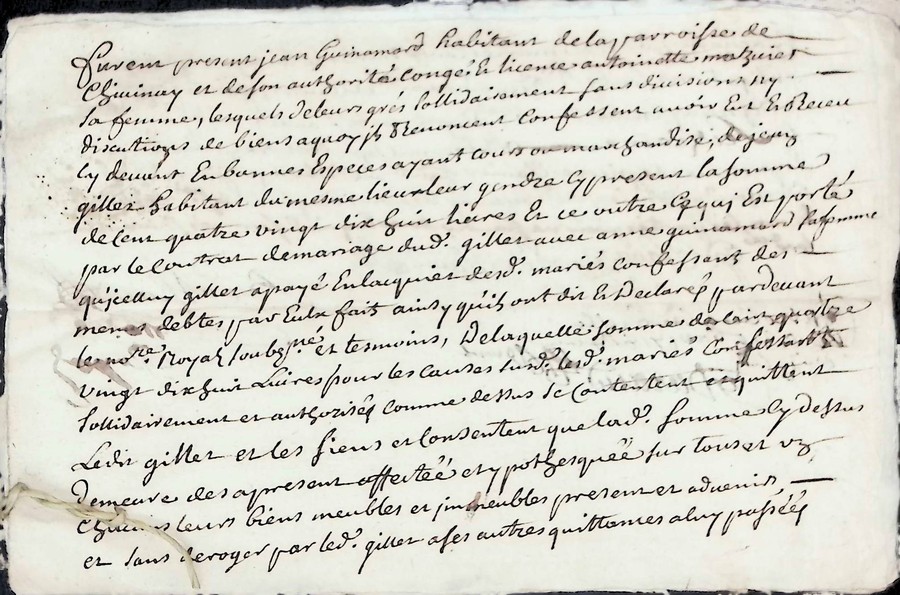 furent present jean Guinamard habitant de la parroisse de
et de son authorité congé Et licence antoinette
sa femme, lesquels de leurs grés sollidairement sans division ny
discutions de biens a quoy renoncent Confessent avoir Eut Et Receu
Cy devant En bonnes Especes ayant cours ou marchandise, de jean
gillet habitant du mesme lieu leur gendre Cy present la somme
de Cent quatre vingt dix huit livres Et ce outre Ce qui Est porté
par le Contrat de mariage dud. gillet avec anne guinamard sa femme
qu'jcelluy gillet a payé En lacquict desd. mariés confessant des
menues debtes par Eulx fait ainsy qu'ils ont dit Et Declaré par devant
le no.re Royal soubz.né et tesmoins, De laquelle somme de Cent quatre
vingt dix huit Livres pour les causes susd. lesd. mariés Confessant
sollidairement et authorisée comme dessus se Contentent et quittent
Ledit gillet et les siens et Consentent que lad. somme Cy dessus
demeure des a present affectéé et ypothesquéé sur tous et
Chacuns leurs biens meubles et jmmeubles present et advenir,
et sans deroger par led. gillet a ses autres quittances a luy passéés